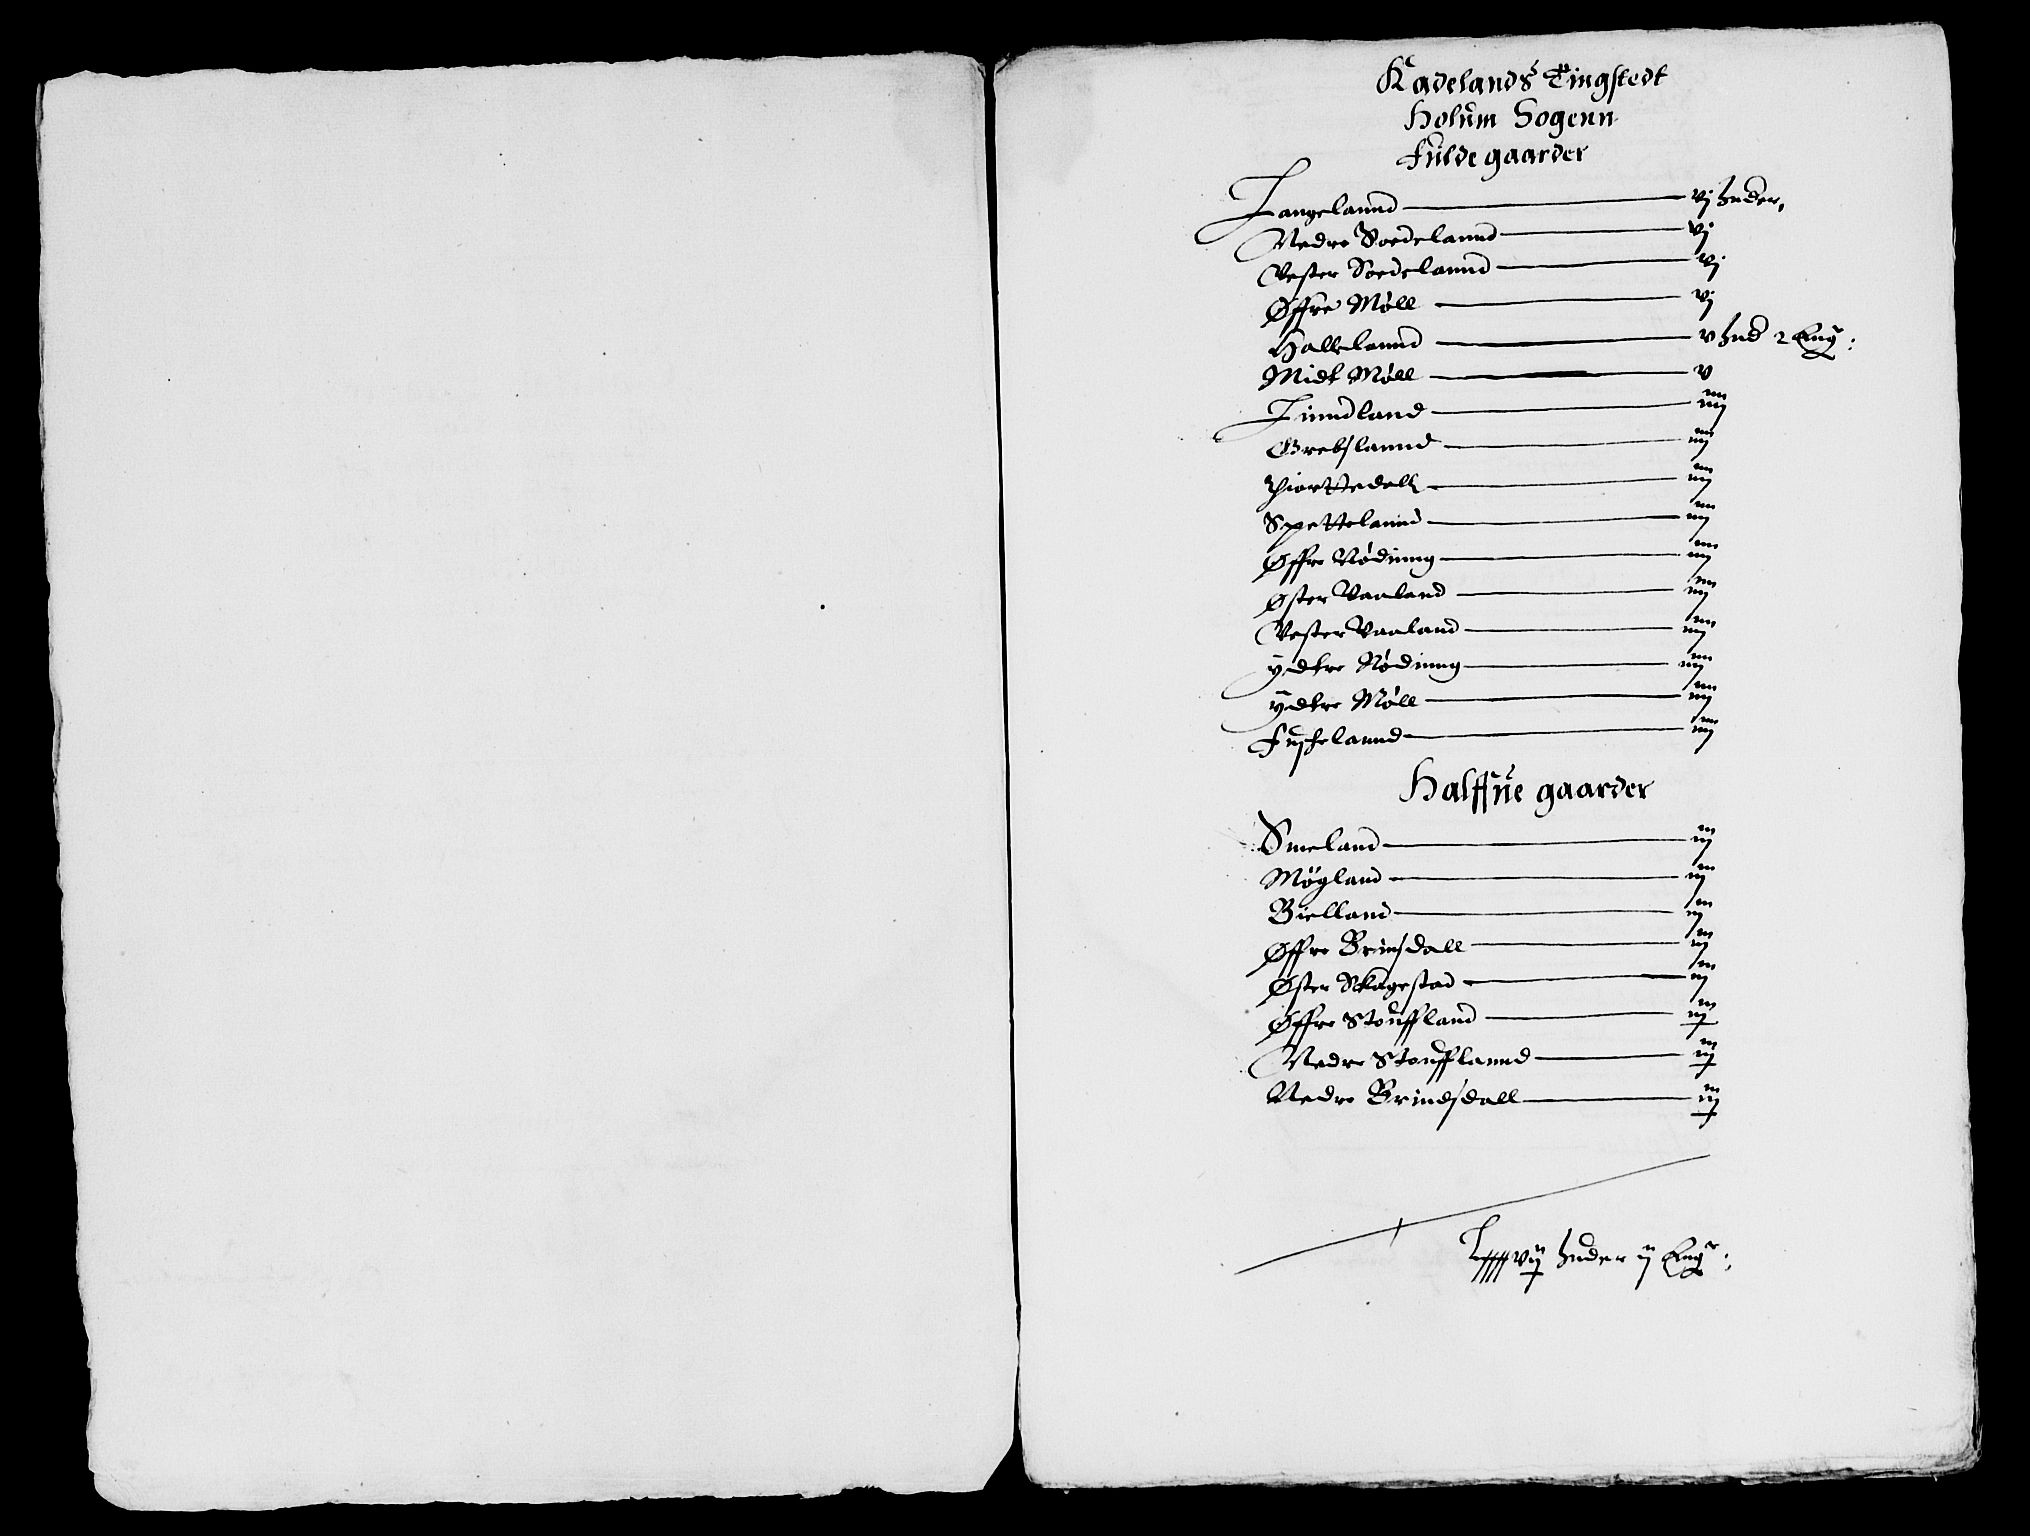 Kadelands Tingstedt
Holum Sogenn
Fulde gaarder
Langelannd — vj huder,
Nedre Soedelannd — vj
Vester Soedelannd — vj
Øffre Møll — vj
Hallelannd — v hud 2 Eng:
Midt Møll — v
Linndland — iiij
Grebslannd — iiij
Hiorttedall — iiij
Spettelannd — iiij
Øffre Nødinng — iiij
Øster Vaaland — iiij
Vester Vaaland — iiij
ydtre Nødinng — iiij
ydtre Møll — iiij
Fuskelannd — iiij
Halffue gaarder
Smeland — iij
Møgland — iij
Bielland — iij
Øffre Brinsdall — iij
Øster Skagestad — iij
Øffre Stouffland — iij
Nedre Stoufflannd — iij
Nedre Brindsdall — iij
Lxxxxvij huder ij Eng: